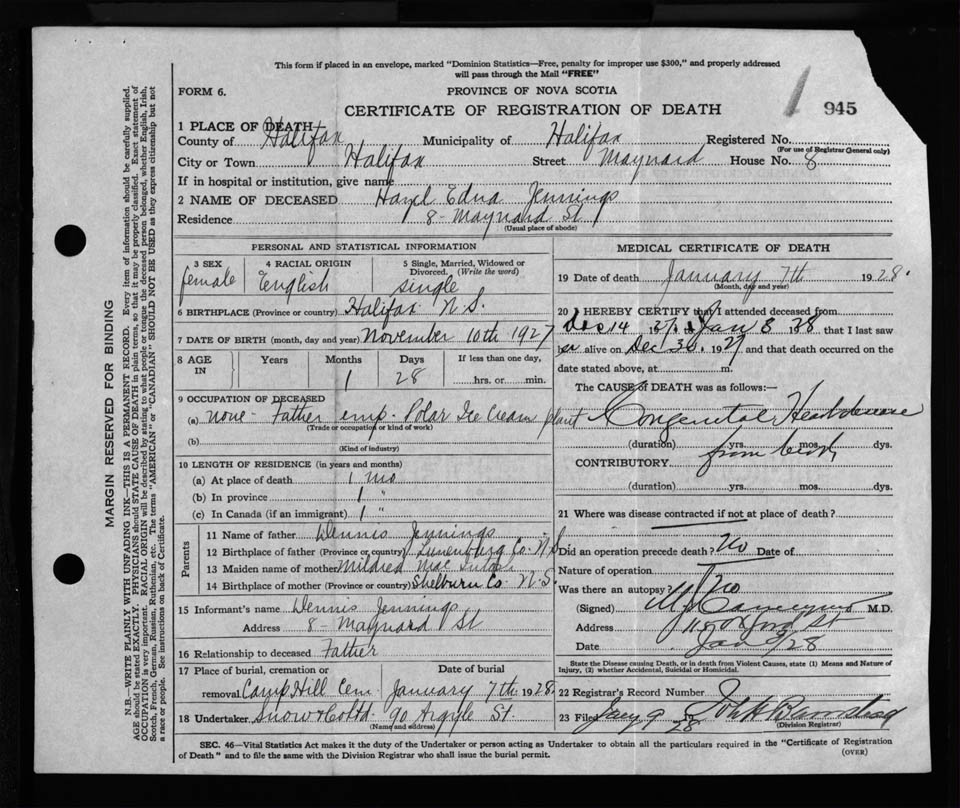 This form if placed in an envelope, marked "Dominion Statistics—Free, penalty for improper use $300," and properly addressed
will pass through the Mail "FREE"
FORM 6.
PROVINCE OF NOVA SCOTIA
CERTIFICATE OF REGISTRATION OF DEATH
945
1 PLACE OF DEATH
County of Halifax Municipality of Halifax Registered No.
(For use of Registrar General only)
City or Town Halifax Street Maynard House No. 8
If in hospital or institution, give name
2 NAME OF DECEASED Hazel Edna Jennings
Residence 8 - Maynard St
(Usual place of abode)
PERSONAL AND STATISTICAL INFORMATION
3 SEX female
4 RACIAL ORIGIN English
5 Single, Married, Widowed or Divorced. (Write the word) single
6 BIRTHPLACE (Province or country) Halifax N.S.
7 DATE OF BIRTH (month, day and year) November 10th 1927
8 AGE IN Years Months 1 Days 28 If less than one day, hrs. or min.
9 OCCUPATION OF DECEASED
(a) none - Father emp. Polar Ice Cream plant
(Trade or occupation or kind of work)
(b)
(Kind of industry)
10 LENGTH OF RESIDENCE (in years and months)
(a) At place of death 1 mo
(b) In province 1 "
(c) In Canada (if an immigrant) 1 "
Parents
11 Name of father Dennis Jennings
12 Birthplace of father (Province or country) Lunenburg Co. N.S
13 Maiden name of mother Mildred Mac
14 Birthplace of mother (Province or country) Shelburn Co. N.S.
15 Informant's name Dennis Jennings
Address 8 - Maynard St
16 Relationship to deceased Father
17 Place of burial, cremation or removal Camp Hill Cem. Date of burial January 7th 1928
18 Undertaker Snow & Co Ltd. 90 Argyle St.
(Name and address)
MEDICAL CERTIFICATE OF DEATH
19 Date of death January 7th 1928.
(Month, day and year)
20 I HEREBY CERTIFY that I attended deceased from
Dec 14 27 to Jan 3 28 that I last saw
her alive on Dec 30, 1927 and that death occurred on the
date stated above, at m.
The CAUSE OF DEATH was as follows:—
Congenital Heart disease
(duration) yrs. mos. dys.
from birth
CONTRIBUTORY
(duration) yrs. mos. dys.
21 Where was disease contracted if not at place of death?
Did an operation precede death? No Date of
Nature of operation
Was there an autopsy? No
(Signed) M.D.
Address Oxford St
Date Jan 28
State the Disease causing Death, or in death from Violent Causes, state (1) Means and Nature of
Injury, (2) whether Accidental, Suicidal or Homicidal.
22 Registrar's Record Number
23 Filed Jany 9 28 John
(Division Registrar)
SEC. 46—Vital Statistics Act makes it the duty of the Undertaker or person acting as Undertaker to obtain all the particulars required in the "Certificate of Registration
of Death" and to file the same with the Division Registrar who shall issue the burial permit.
(OVER)
MARGIN RESERVED FOR BINDING
N.B.—WRITE PLAINLY WITH UNFADING INK—THIS IS A PERMANENT RECORD. Every item of information should be carefully supplied.
AGE should be stated EXACTLY. PHYSICIANS should STATE CAUSE OF DEATH in plain terms, so that it may be properly classified. Exact statement of
OCCUPATION is very important. RACIAL ORIGIN will be described by stating to what people or tongue the deceased person belonged, whether English, Irish,
Scotch, French, German, Russian, Ruthenian, etc. The terms "AMERICAN" or "CANADIAN" SHOULD NOT BE USED as they express citizenship but not
a race or people. See instructions on back of Certificate.